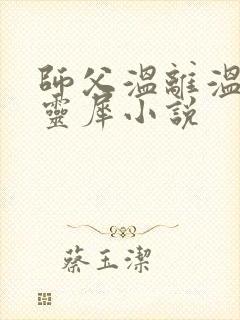 師父溫離溫
靈犀小說
蔡玉潔